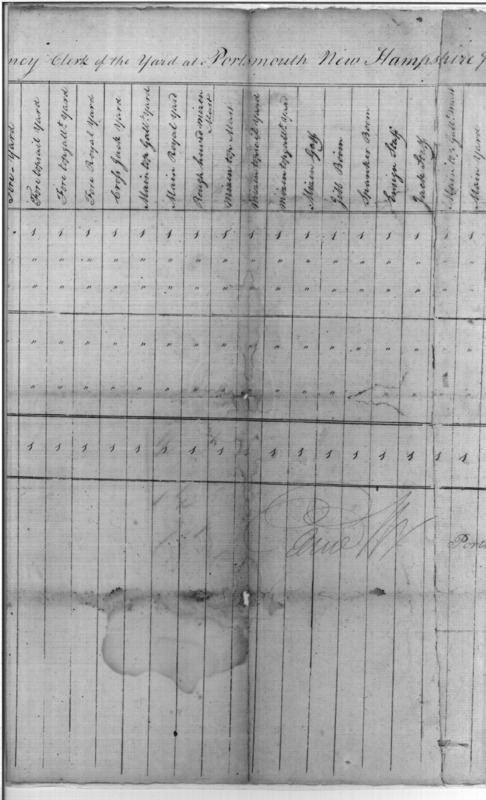 ney Clerk of the Yard at Portsmouth New Hampshire
Fore Yard
Fore topsail Yard
Fore topgallt. Yard
Fore Royal Yard
Cross Jack Yard
Main top Gallt. Yard
Main Royal Yard
Rough hand mizen Mast
Mizen top Mast
Mizen topsail Yard
Mizen topgallt. Yard
Mizen Gaff
Gibb Boom
Spanker Boom
Ensign Staff
Jack Staff
Main top Gallt. Mast
Main Yard
" 1 1 1 1 1 1 1 1 1 1 1 1 1 1 1 1 1
" " " " " " " " " " " " " " " " " "
" " " " " " " " " " " " " " " " " "
" " " " " " " " " " " " " " " " "
" " " " " " " " " " " " " " " " "
1 1 1 1 1 1 1 1 1 1 1 1 1 1 1 1 1
Ports